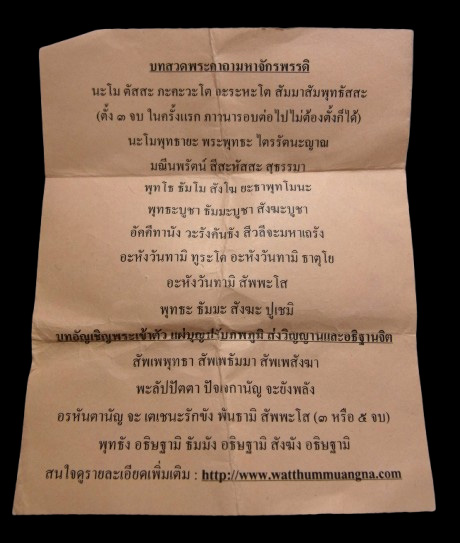 บทสวดพระคาถามหาจักรพรรดิ
นะโม ตัสสะ ภะคะวะโต อะระหะโต สัมมาสัมพุทธัสสะ
(ตั้ง ๓ จบ ในครั้งแรก ภาวนารอบต่อไปไม่ต้องตั้งก็ได้)
นะโมพุทธายะ พระพุทธะ ไตรรัตนะญาณ
มณีนพรัตน์ สีสะหัสสะ สุธรรมา
พุทโธ ธัมโม สังโฆ ยะธาพุทโมนะ
พุทธะบูชา ธัมมะบูชา สังฆะบูชา
อัคคีทานัง วะรังคันธัง สีวลีจะมหาเถรัง
อะหังวันทามิ ทูระโต อะหังวันทามิ ธาตุโย
อะหังวันทามิ สัพพะโส
พุทธะ ธัมมะ สังฆะ ปูเชมิ
บทอัญเชิญพระเข้าตัว แผ่บุญปรับภพภูมิ ส่งวิญญาณและอธิฐานจิต
สัพเพพุทธา สัพเพธัมมา สัพเพสังฆา
พะลัปปัตตา ปัจเจกานัญ จะยังพลัง
อรหันตานัญ จะ เตเชนะรักขัง พันธามิ สัพพะโส (๓ หรือ ๕ จบ)
พุทธัง อธิษฐามิ ธัมมัง อธิษฐามิ สังฆัง อธิษฐามิ
สนใจดูรายละเอียดเพิ่มเติม : http://www.watthummuangna.com